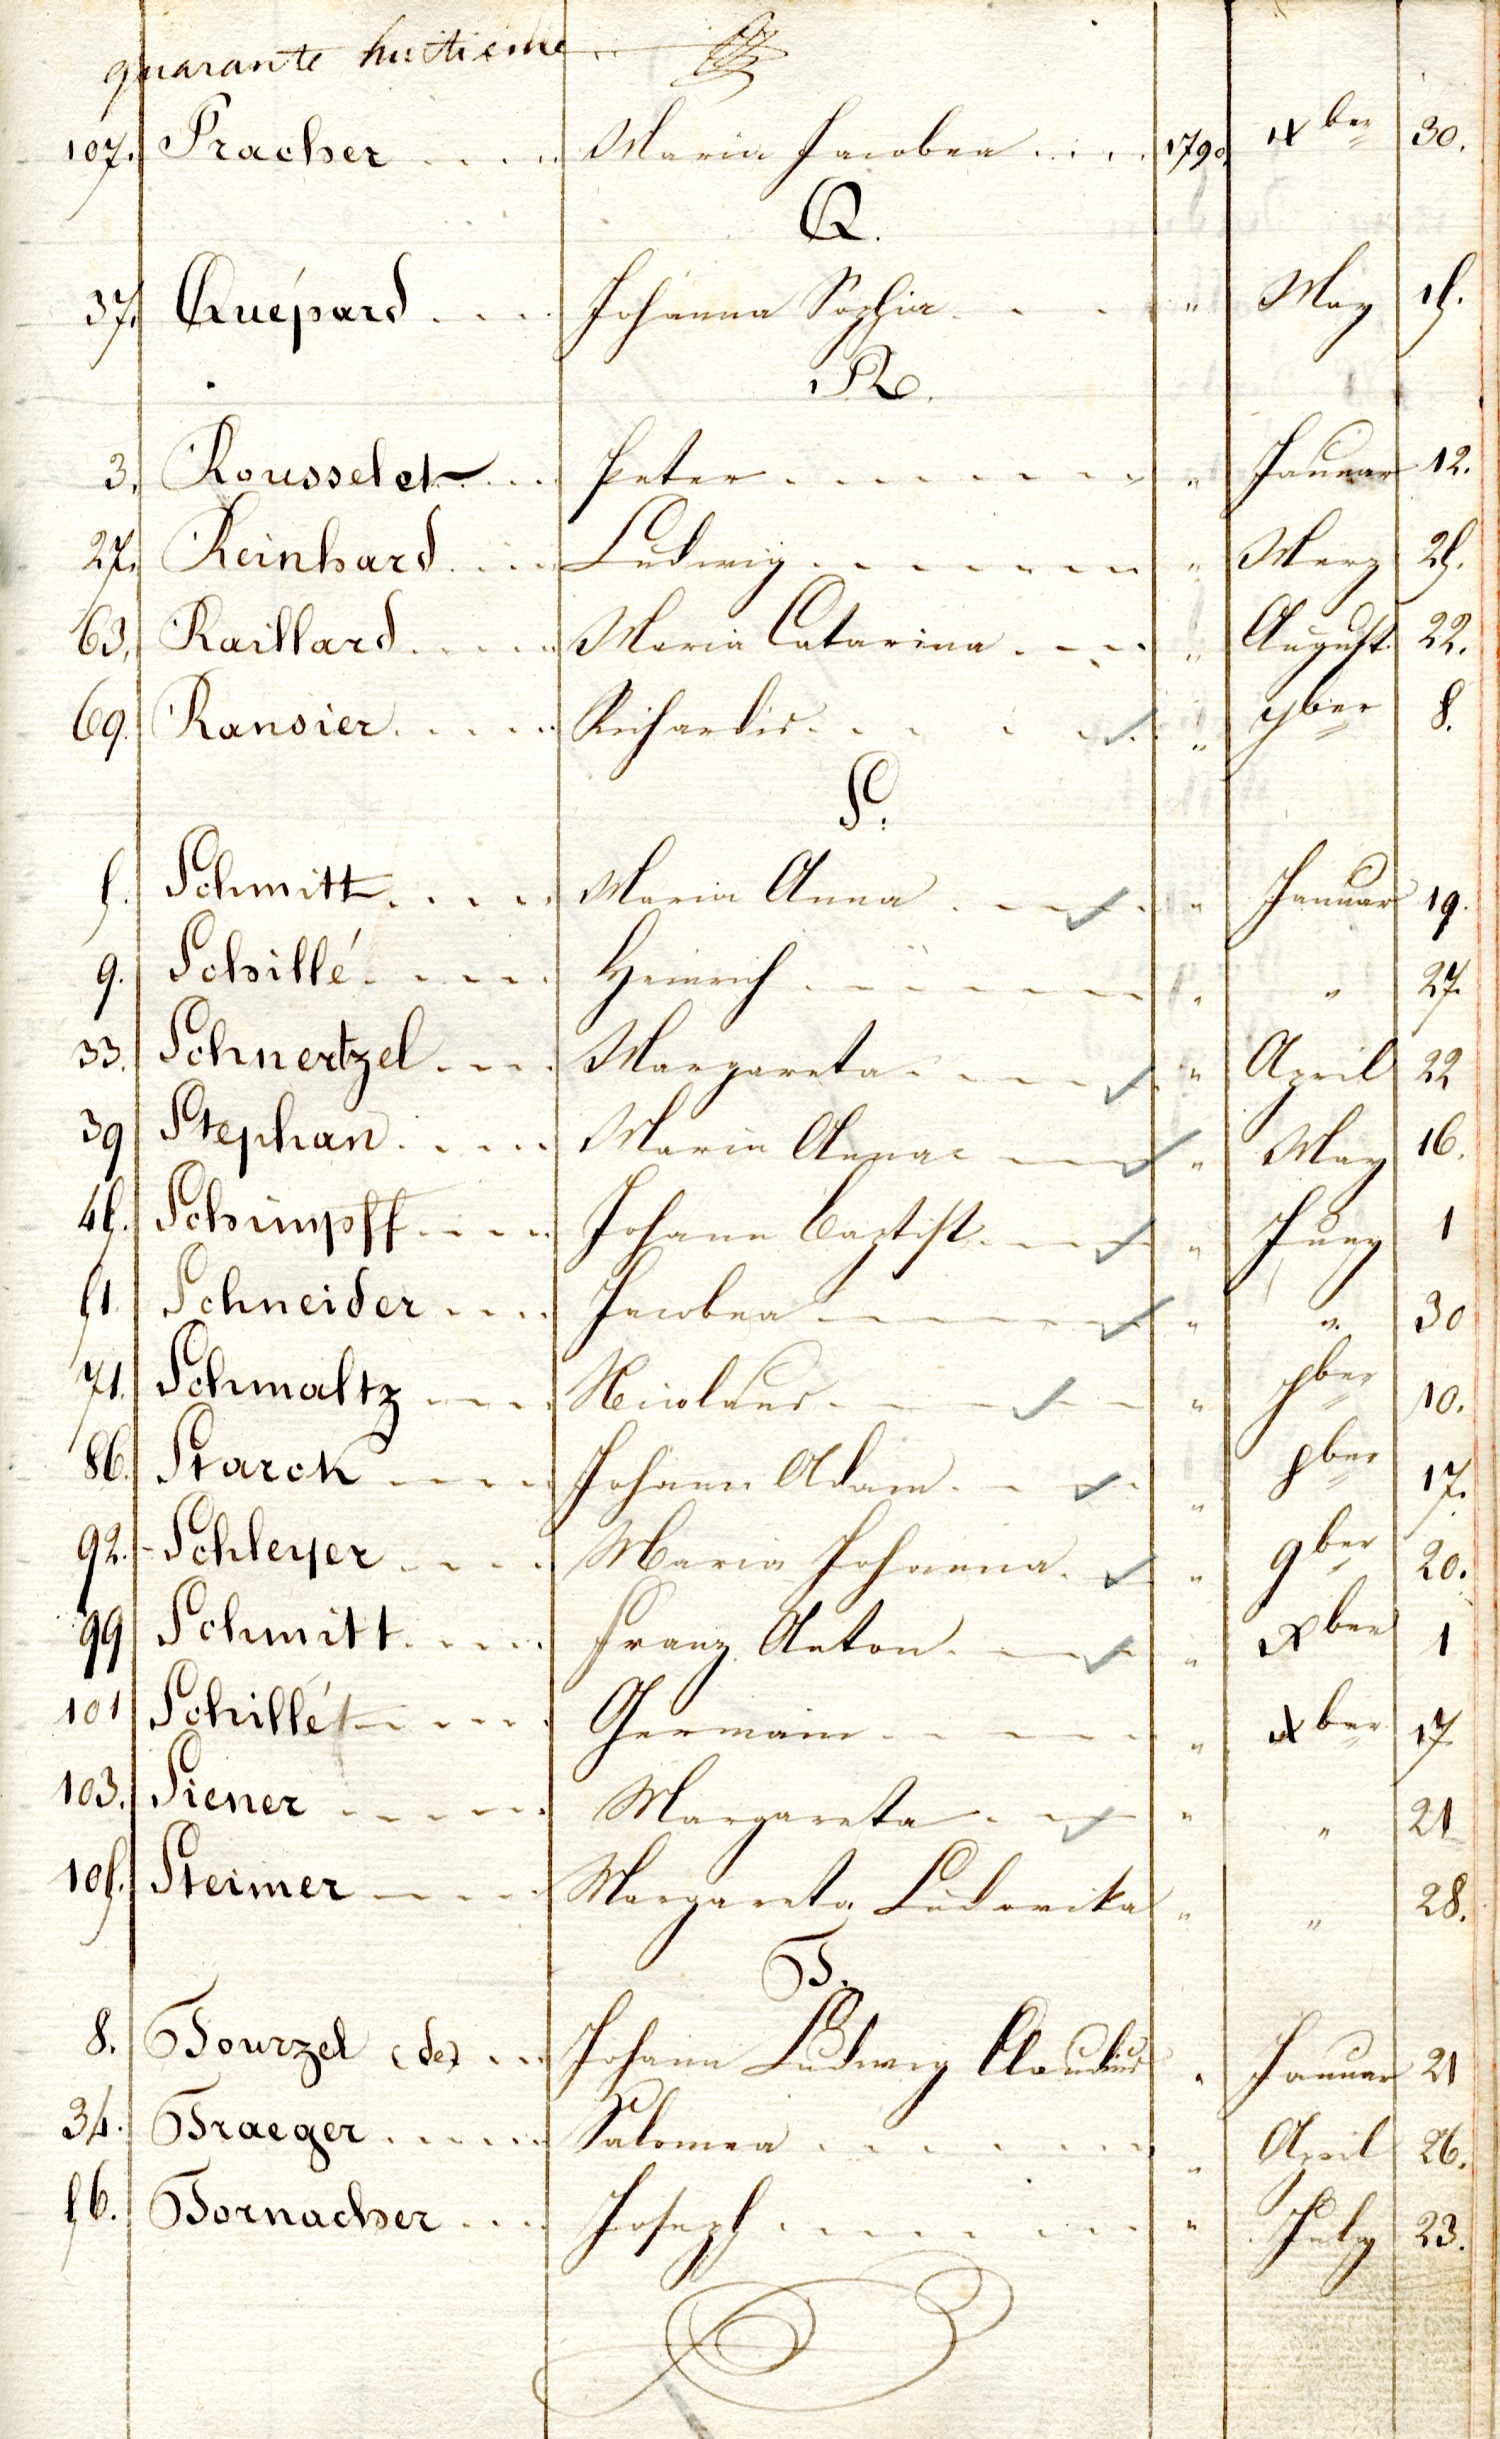 quarante huitieme
107. Pracher Maria Jacobea 1790. Xber 30.
Q.
37. Quépard Johanna Sophia " May 15.
R.
3. Rousselet Peter " Januar 12.
27. Reinhard Ludwig " Merz 25.
63. Raillard Maria Catarina " August 22.
69. Ransier Richardis " 7ber 8.
S.
5. Schmitt Maria Anna " Januar 19.
9. Schillé Heinrich " " 27.
33. Schnertzel Margareta " April 22
39 Stephan Maria Anna " May 16.
45. Schimpff Johann Baptist " Juny 1
51. Schneider Jacobea " " 30
71. Schmaltz Nicolaus " 7ber 10.
86. Starck Johann Adam " 8ber 17.
92. Schleyer Maria Johanna " 9ber 20.
99 Schmitt Franz Anton " Xber 1
101 Schillét Germain " Xber 17
103. Siener Margareta " " 21
105. Steimer Margareta Ludovika " " 28.
T.
8. Tourzel (de) Johann Ludwig Claudius " Januar 21
34. Traeger Salomea " April 26.
56. Tornacher Joseph " July 23.